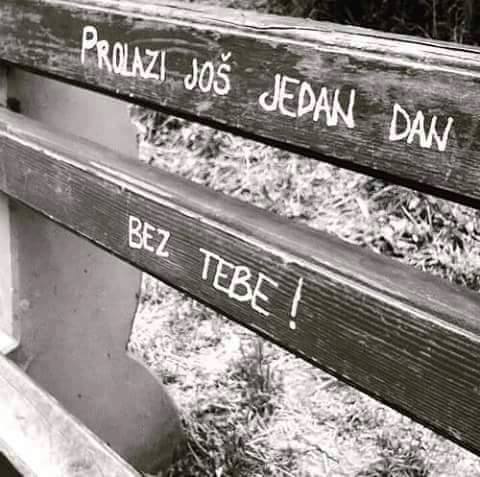 PROLAZI JOŠ JEDAN DAN
BEZ TEBE!